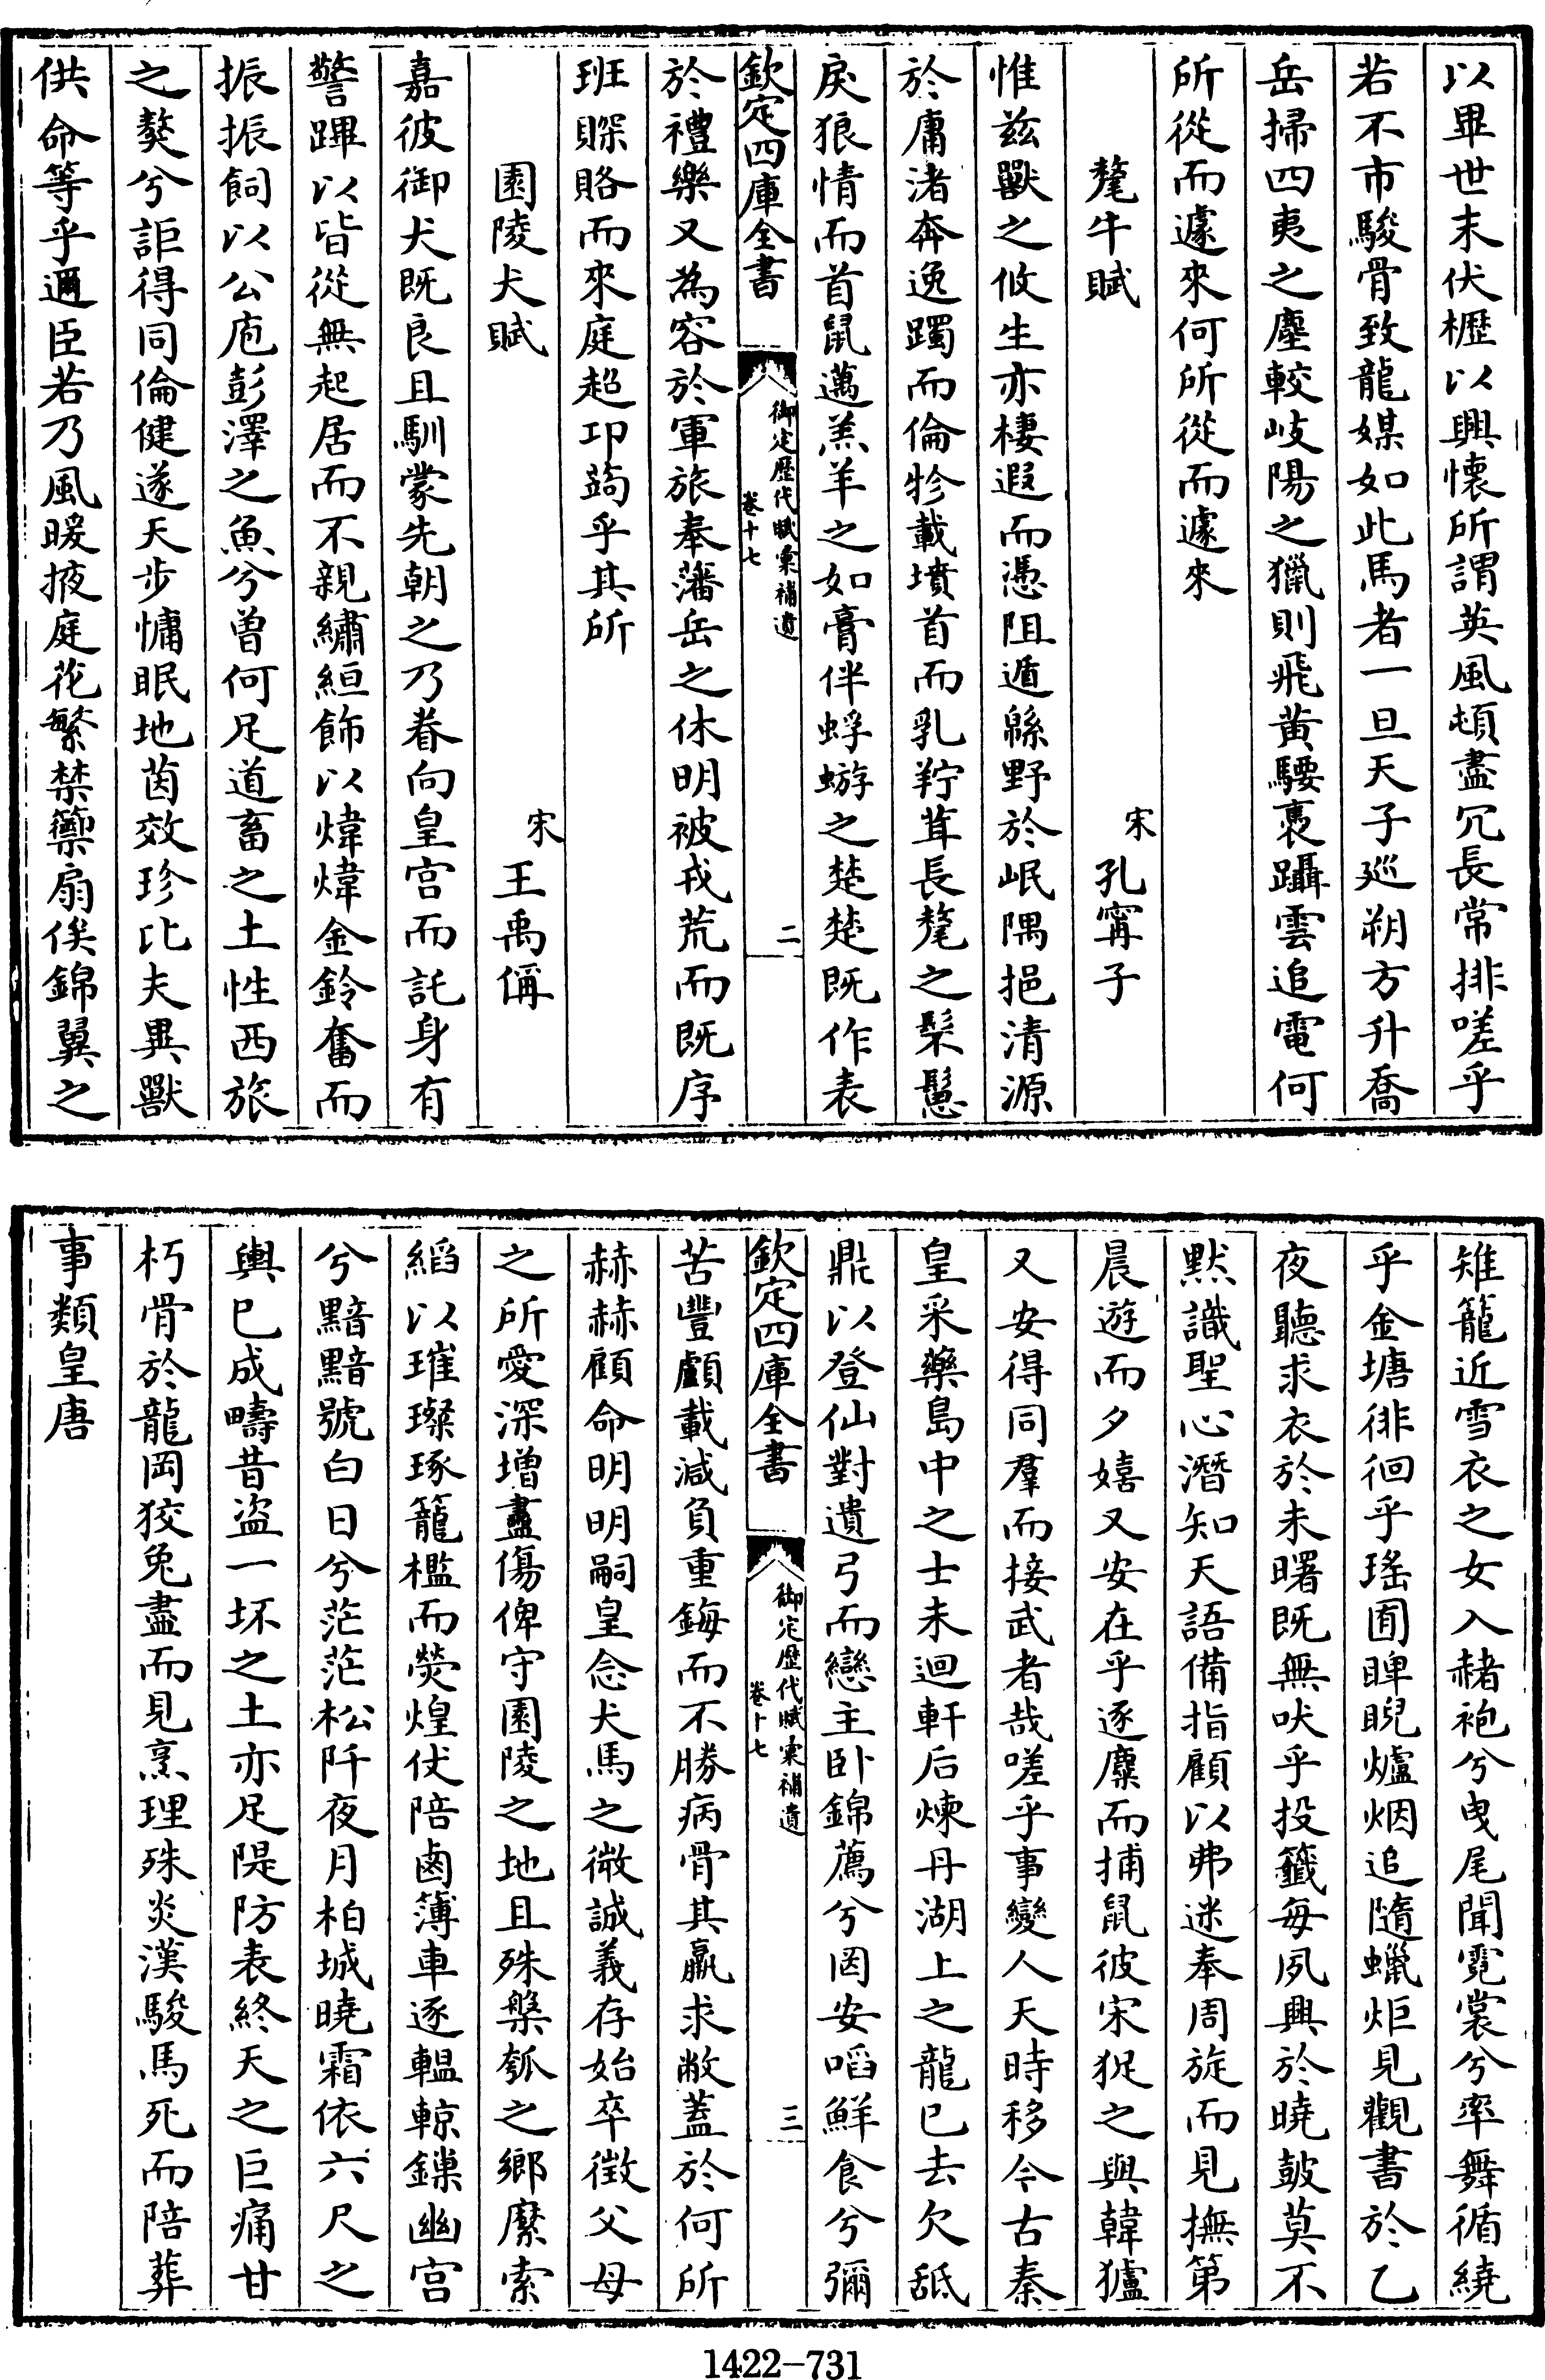 以畢世未伏櫪以興懷所謂英風頓盡冗長常排嗟乎
若不市駿骨致龍媒如此馬者一旦天子廵朔方升喬
岳掃四夷之塵較岐陽之獵則飛黄騕褭躡雲追電何
所從而遽來何所從而遽來
氂牛賦
宋孔寗子
惟兹獸之攸生亦棲遐而憑阻遁緜野於岷隅挹清源
於庸渚奔逸躅而倫軫載墳首而乳羜茸長氂之髤鬆
戾狼情而首鼠邁羔羊之如膏伴蜉蝣之楚楚既作表
欽定四庫全書
御定歴代賦彚補遺
卷十七
二
於禮樂又為容於軍旅奉藩岳之休明被戎荒而既序
班賝賂而來庭超邛蒟乎其所
園陵犬賦
宋王禹偁
嘉彼御犬既良且馴蒙先朝之乃眷向皇宫而託身有
警蹕以皆從無起居而不親繡絙飾以煒煒金鈴奮而
振振飼以公庖彭澤之魚兮曽何足道畜之土性西旅
之獒兮詎得同倫健遂天步慵眠地茵效珍比夫異獸
供命等乎邇臣若乃風暖掖庭花繁禁籞扇俟錦翼之
雉籠近雪衣之女入赭袍兮曳尾聞霓裳兮率舞循繞
乎金塘徘徊乎瑤囿睥睨爐烟追隨蠟炬見觀書於乙
夜聽求衣於未曙既無吠乎投籤每夙興於曉鼔莫不
黙識聖心潛知天語備指顧以弗迷奉周旋而見撫第
晨遊而夕嬉又安在乎逐麋而捕鼠彼宋捉之與韓獹
又安得同羣而接武者哉嗟乎事變人天時移今古秦
皇采藥島中之士未迴軒后煉丹湖上之龍已去欠䑛
鼎以登仙對遺弓而戀主卧錦薦兮罔安啗鮮食兮彌
欽定四庫全書
御定歴代賦彚補遺
卷十七
三
苦豐顱載減負重鋂而不勝病骨其羸求敝葢於何所
赫赫顧命明明嗣皇念犬馬之微誠義存始卒徴父母
之所愛深增盡傷俾守園陵之地且殊槃瓠之鄉縻索
縚以璀璨琢籠檻而熒煌仗陪鹵簿車逐轀輬鏁幽宫
兮黯黯號白日兮茫茫松阡夜月柏城曉霜依六尺之
輿已成疇昔盜一坏之土亦足隄防表終天之巨痛甘
朽骨於龍岡狡兔盡而見烹理殊炎漢駿馬死而陪葬
事類皇唐
1422-731